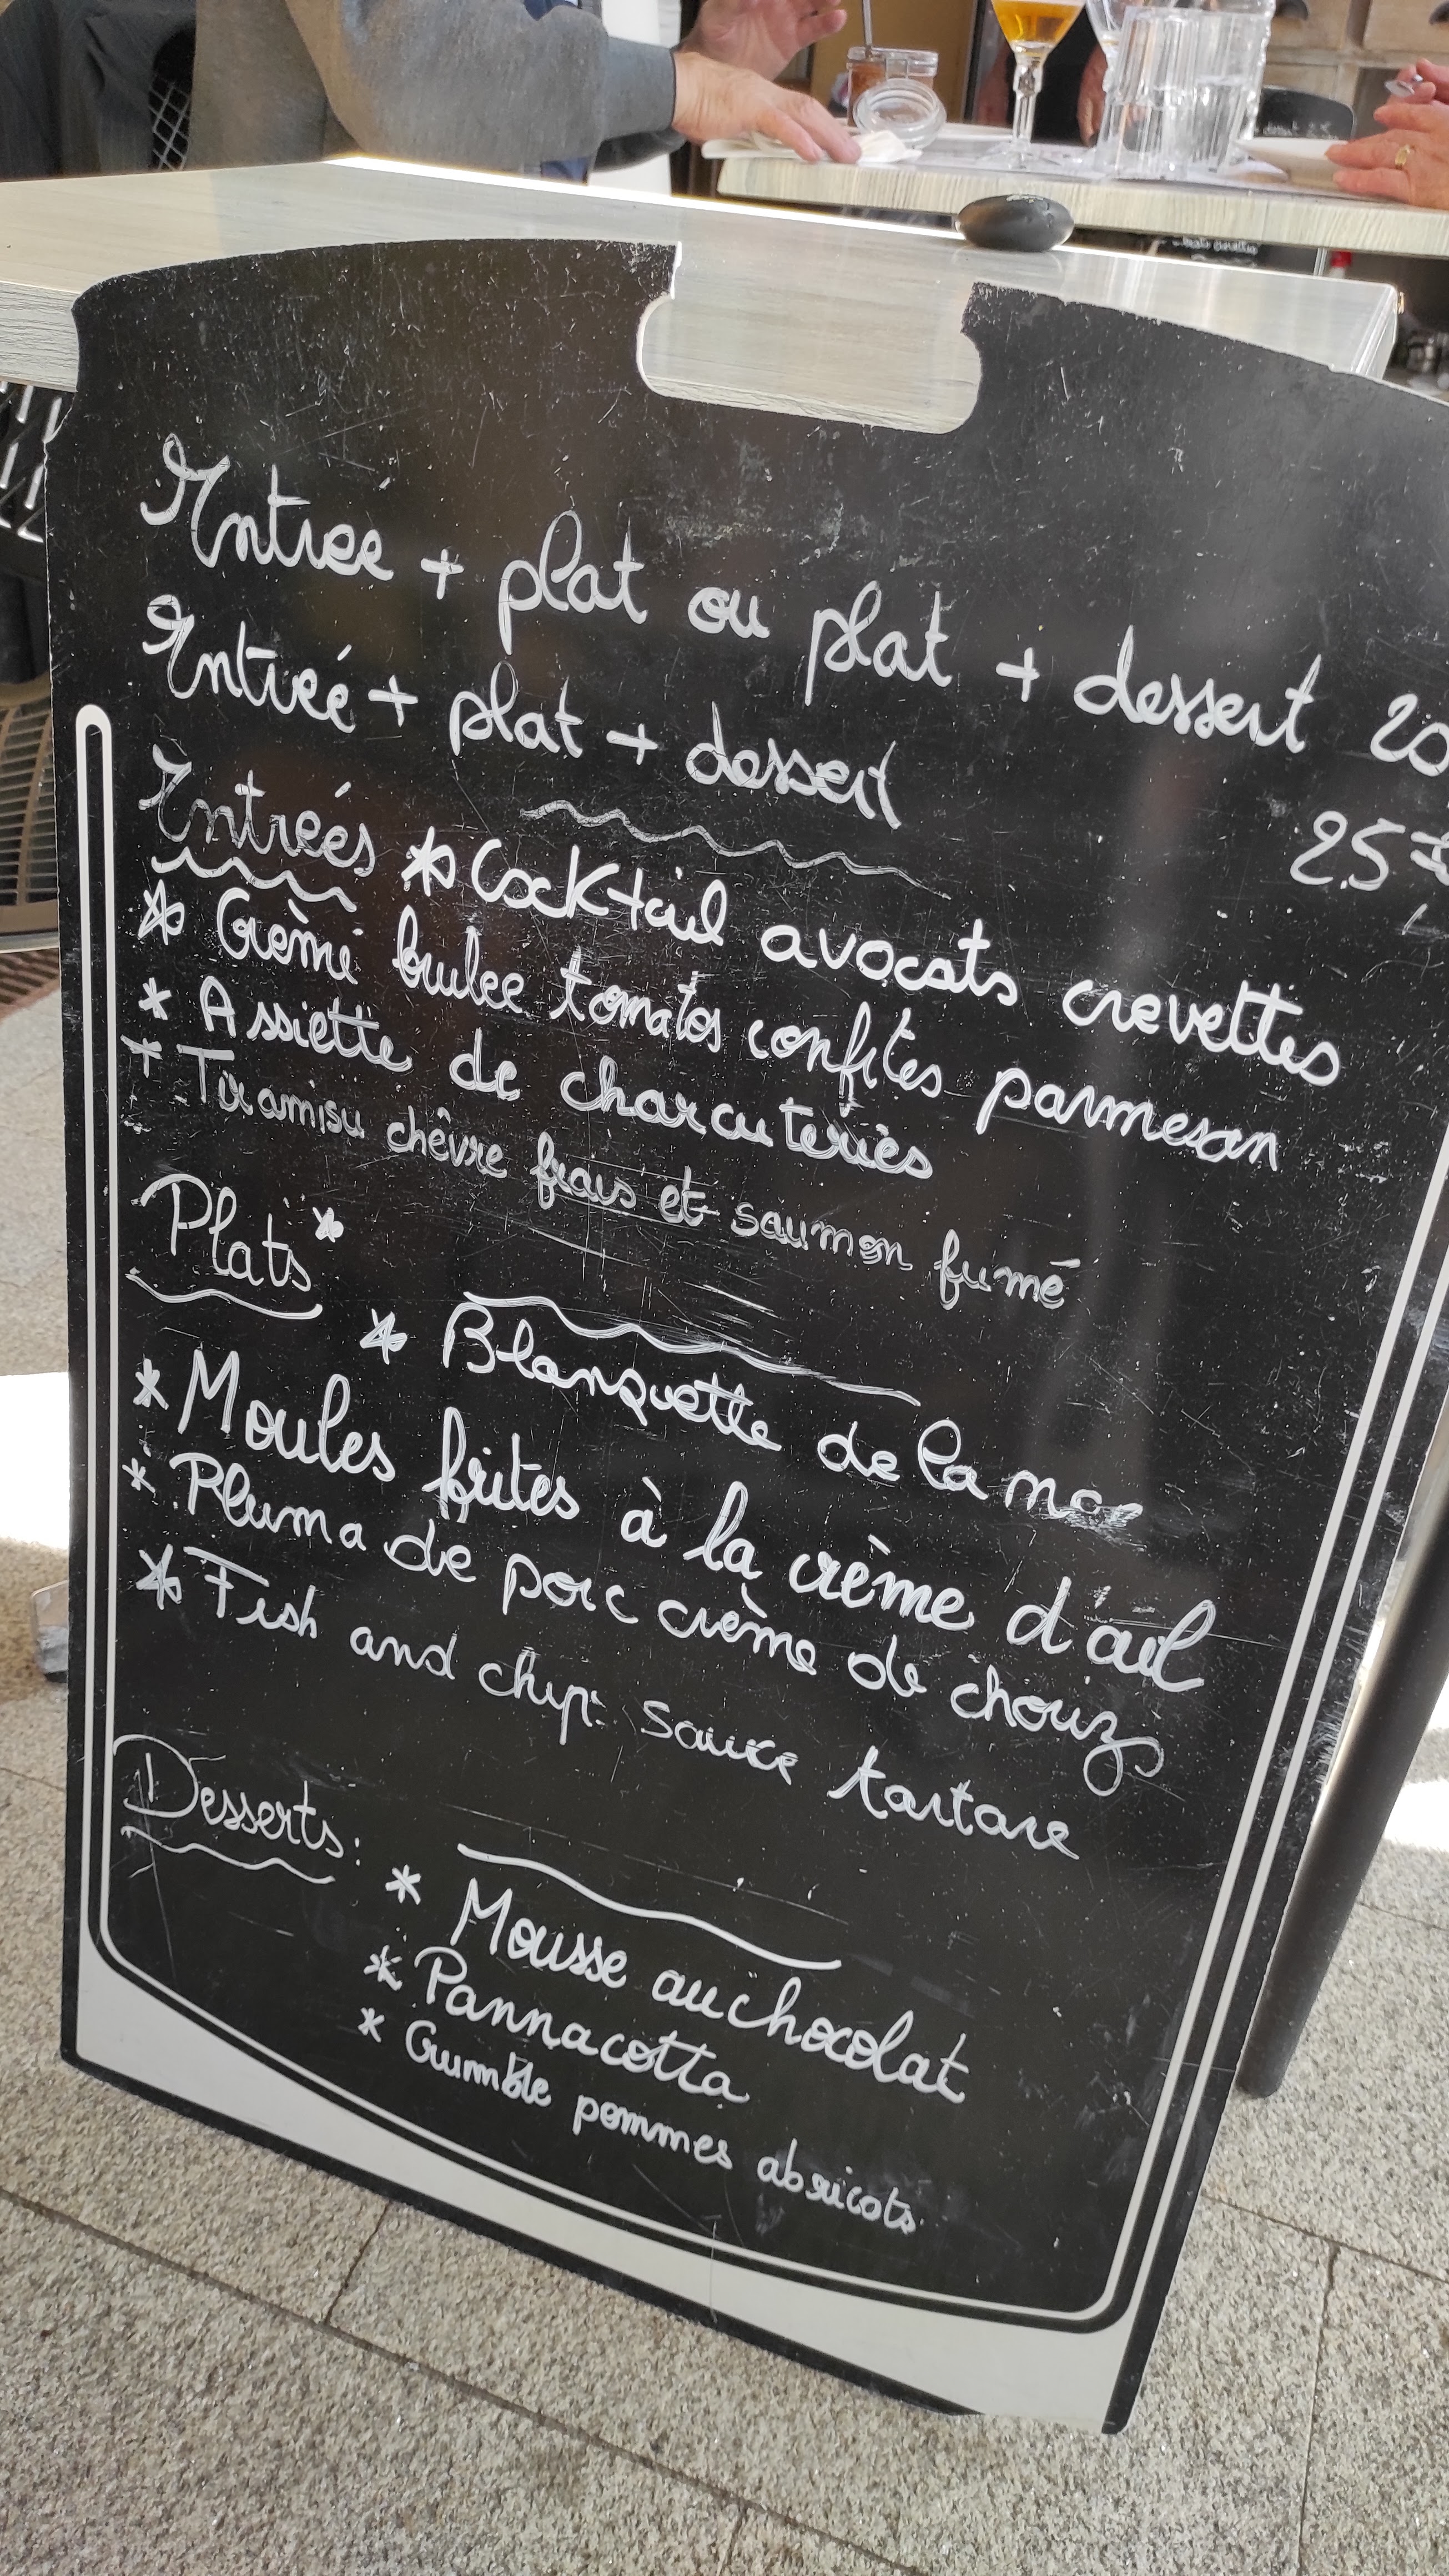 Entree + plat ou plat + dessert 20
Entreé + plat + dessert
25
Entrées * Cocktail avocats crevettes
* Crème brulee tomates confites parmesan
* Assiette de charcuteries
* Tiramisu chêvre frais et saumon fumé
Plats
* Blanquette de la mer
* Moules frites à la crème d'ail
* Pluma de porc crème de choriz
* Fish and chips sauce tartare
Desserts:
* Mousse au chocolat
* Pannacotta
* Crumble pommes abricots